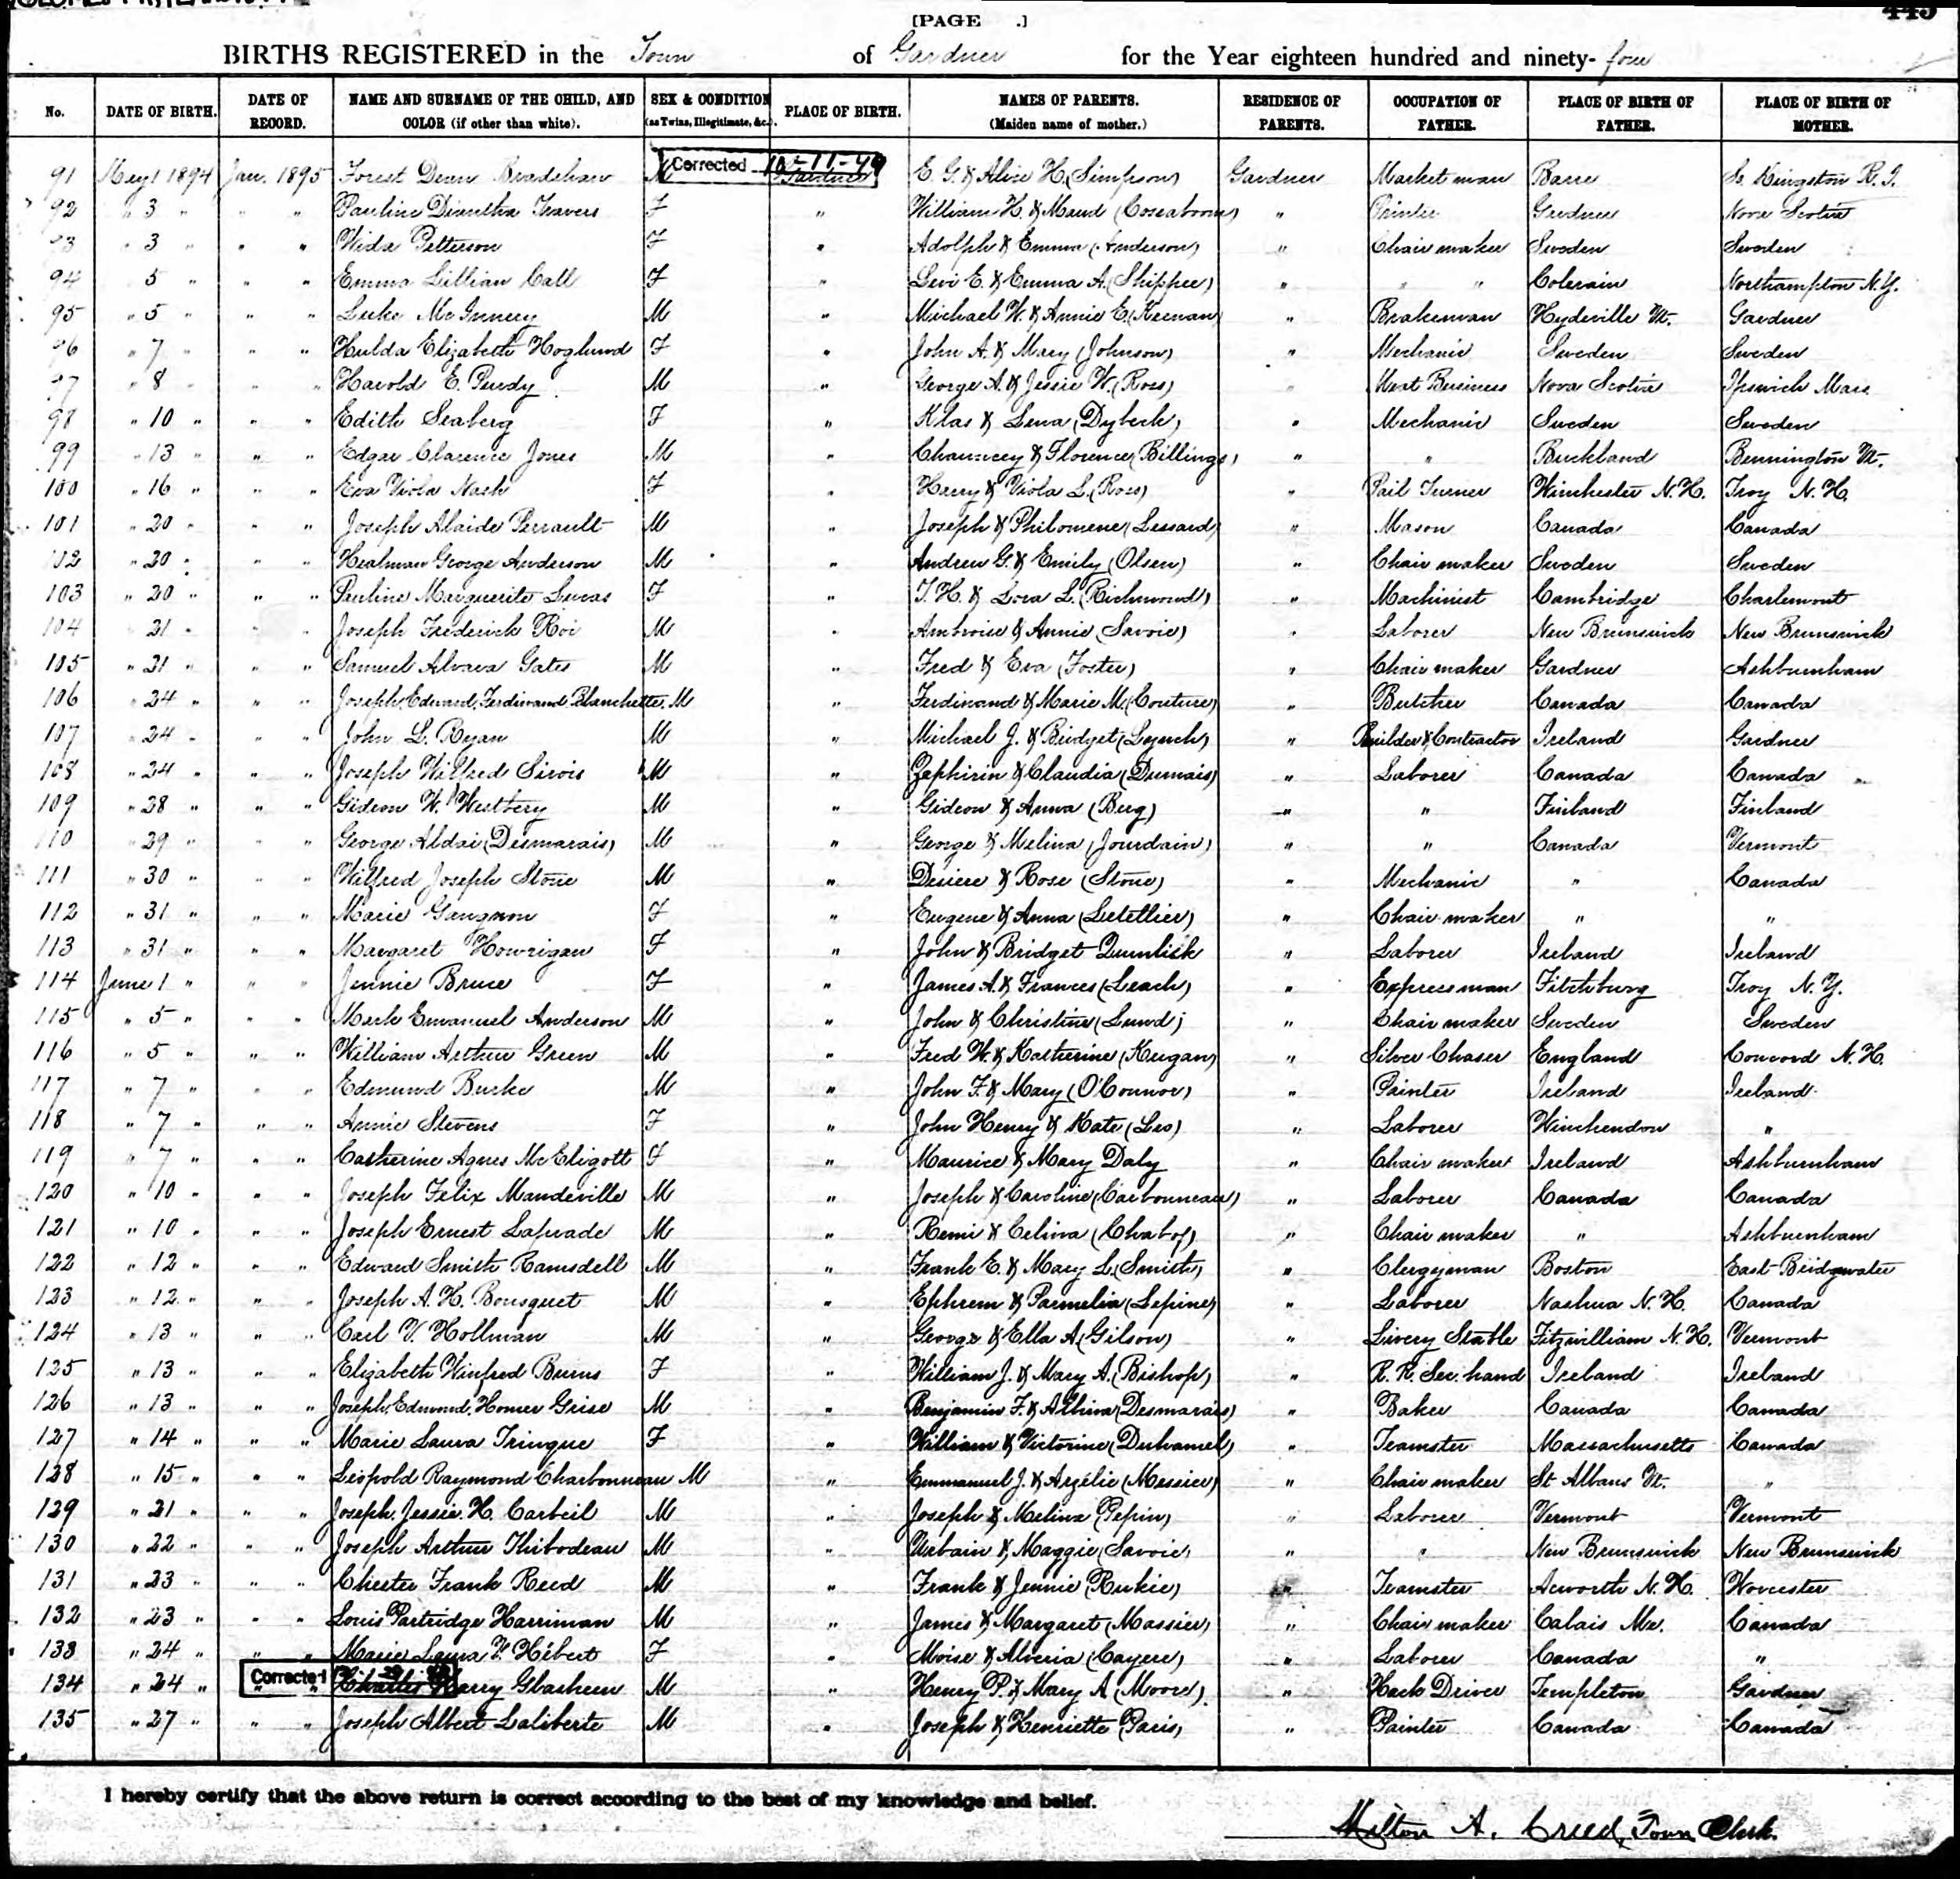 445
[PAGE .]
BIRTHS REGISTERED in the Town of Gardner for the Year eighteen hundred and ninety-four
No. DATE OF BIRTH. DATE OF RECORD. NAME AND SURNAME OF THE CHILD, AND COLOR (if other than white). SEX & CONDITION (as Twins, Illegitimate, &c.). PLACE OF BIRTH. NAMES OF PARENTS. (Maiden name of mother.) RESIDENCE OF PARENTS. OCCUPATION OF FATHER. PLACE OF BIRTH OF FATHER. PLACE OF BIRTH OF MOTHER.
Corrected 10-11-49
91 May 1 1894 Jan. 1895 Forest Dean Bradshaw M Gardner E. G. & Alice H. (Simpson) Gardner Market man Barre So. Kingston R. I.
92 " 3 " " " Pauline Diantha Travers F " William H. & Maud (Cossaboom) " Painter Gardner Nova Scotia
93 " 3 " " " Wida Petterson F " Adolph & Emma (Anderson) " Chair maker Sweden Sweden
94 " 5 " " " Emma Lillian Call F " Levi E. & Emma A. (Shippee) " " " Colerain Northampton N.Y.
95 " 5 " " " Luke McInnery M " Michael W. & Annie E. (Keenan) " Brakeman Hydeville Vt. Gardner
96 " 7 " " " Hulda Elizabeth Hoglund F " John A. & Mary (Johnson) " Mechanic Sweden Sweden
97 " 8 " " " Harold E. Purdy M " George A. & Jessie W. (Ross) " Meat Business Nova Scotia Ipswich Mass
98 " 10 " " " Edith Seaberg F " Klas & Lena (Dybeck) " Mechanic Sweden Sweden
99 " 13 " " Edgar Clarence Jones M " Chauncey & Florence (Billings) " " Buckland Bennington Vt.
100 " 16 " " " Eva Viola Nash F " Harry & Viola L. (Ross) " Pail Turner Winchester N.H. Troy N.H.
101 " 20 " " " Joseph Alaide Perrault M " Joseph & Philomene (Lessard) " Mason Canada Canada
102 " 20 " " " Healman George Anderson M " Andrew G. & Emily (Olsen) " Chair maker Sweden Sweden
103 " 20 " " " Pauline Marguerite Lucas F " T. H. & Lora L. (Richmond) " Machinist Cambridge Charlemont
104 " 21 " " " Joseph Frederick Roi M " Ambroise & Annie (Savoie) " Laborer New Brunswick New Brunswick
105 " 21 " " " Samuel Alvara Gates M " Fred & Eva (Foster) " Chair maker Gardner Ashburnham
106 " 24 " " " Joseph Edward Ferdinand Blanchette M " Ferdinand & Marie M. (Couture) " Butcher Canada Canada
107 " 24 " " " John L. Ryan M " Michael J. & Bridget (Lynch) " Builder & Contractor Ireland Gardner
108 " 24 " " " Joseph Wilfred Sirois M " Zephirin & Claudia (Dumais) " Laborer Canada Canada
109 " 28 " " " Gideon W. Westbery M " Gideon & Anna (Berg) " " Finland Finland
110 " 29 " " " George Aldai (Desmarais) M " George & Melina (Jourdain) " " Canada Vermont
111 " 30 " " " Wilfred Joseph Stone M " Desiere & Rose (Stone) " Mechanic " Canada
112 " 31 " " " Marie Gaugnon F " Eugene & Anna (Letellier) " Chair maker " "
113 " 31 " " " Margaret Howrigan F " John & Bridget Quinlisk " Laborer Ireland Ireland
114 June 1 " " " Jennie Bruce F " James A. & Frances (Leach) " Express man Fitchburg Troy N.Y.
115 " 5 " " " Mark Emanuel Anderson M " John & Christine (Lund) " Chair maker Sweden Sweden
116 " 5 " " " William Arthur Green M " Fred W. & Katherine (Keegan) " Silver Chaser England Concord N.H.
117 " 7 " " " Edmund Burke M " John F. & Mary (O'Connor) " Painter Ireland Ireland
118 " 7 " " " Annie Stevens F " John Henry & Kate (Leo) " Laborer Winchendon "
119 " 7 " " " Catherine Agnes McEligott F " Maurice & Mary Daly " Chair maker Ireland Ashburnham
120 " 10 " " " Joseph Felix Mandeville M " Joseph & Caroline (Carbonneau) " Laborer Canada Canada
121 " 10 " " " Joseph Ernest Laprade M " Remi & Celina (Chabot) " Chair maker " Ashburnham
122 " 12 " " " Edward Smith Ramsdell M " Frank E. & Mary L. (Smith) " Clergyman Boston East Bridgwater
123 " 12 " " " Joseph A. H. Bousquet M " Ephrem & Parmelia (Lepine) " Laborer Nashua N.H. Canada
124 " 13 " " " Carl V. Hollman M " George & Ella A. (Gilson) " Livery Stable Fitzwilliam N.H. Vermont
125 " 13 " " " Elizabeth Winfred Burns F " William J. & Mary A. (Bishop) " R. R. Sec. hand Ireland Ireland
126 " 13 " " " Joseph Edmund Homer Grise M " Benjamin F. & Albina (Desmarais) " Baker Canada Canada
127 " 14 " " " Marie Laura Tringue F " William & Victorine (Duhamel) " Teamster Massachusetts Canada
128 " 15 " " " Leopold Raymond Charbonneau M " Emmanuel J. & Azelie (Messier) " Chair maker St Albans Vt. "
129 " 21 " " " Joseph Jessie H. Carbeil M " Joseph & Melina (Pepin) " Laborer Vermont Vermont
130 " 22 " " " Joseph Arthur Thibodeau M " Urbain & Maggie (Savoie) " " New Brunswick New Brunswick
131 " 23 " " " Chester Frank Reed M " Frank & Jennie (Rukie) " Teamster Acworth N.H. Worcester
132 " 23 " " " Louis Partridge Harriman M " James & Margaret (Massier) " Chair maker Calais Me. Canada
133 " 24 " " " Marie Laura V. Hébert F " Moise & Alveria (Cayere) " Laborer Canada "
Corrected
134 " 24 " " " Charles Harry Glasheen M " Henry P. & Mary A (Moore) " Hack Driver Templeton Gardner
135 " 27 " " " Joseph Albert Laliberte M " Joseph & Henriette (Paris) " Painter Canada Canada
I hereby certify that the above return is correct according to the best of my knowledge and belief.
Milton A. Creed, Town Clerk.